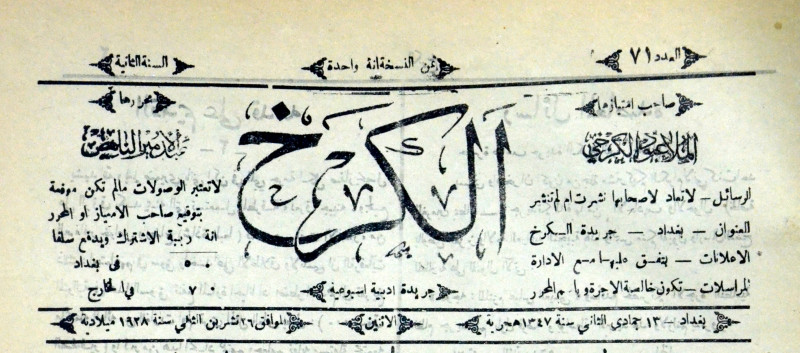 العدد ٧١
ثمن النسخة انة واحدة
السنة الثانية
صاحب امتيازها
الملا عبود الكرخي
الكرخ
محررها
عبد الامير الناهض
الرسائل – لاتعاد لاصحابها نشرت ام لم تنشر
العنوان – بغداد – جريدة الكرخ
الاعلانات – يتفق عليها مع الادارة
المراسلات – تكون خالصة الاجرة وباسم المحرر
لاتعتبر الوصولات مالم تكن موقعة
بتوقيع صاحب الامياز او المحرر
انة ربية الاشتراك ويدفع سلفا
٠ ٥ فى بغداد
٠ ٧ فى الخارج
جريدة ادبية اسبوعية
بغداد – ١٣ جمادى الثاني سنة ١٣٤٧ هجرية
الاثنين
الموافق ٢٦ تشرين الثاني سنة ١٩٢٨ ميلادية